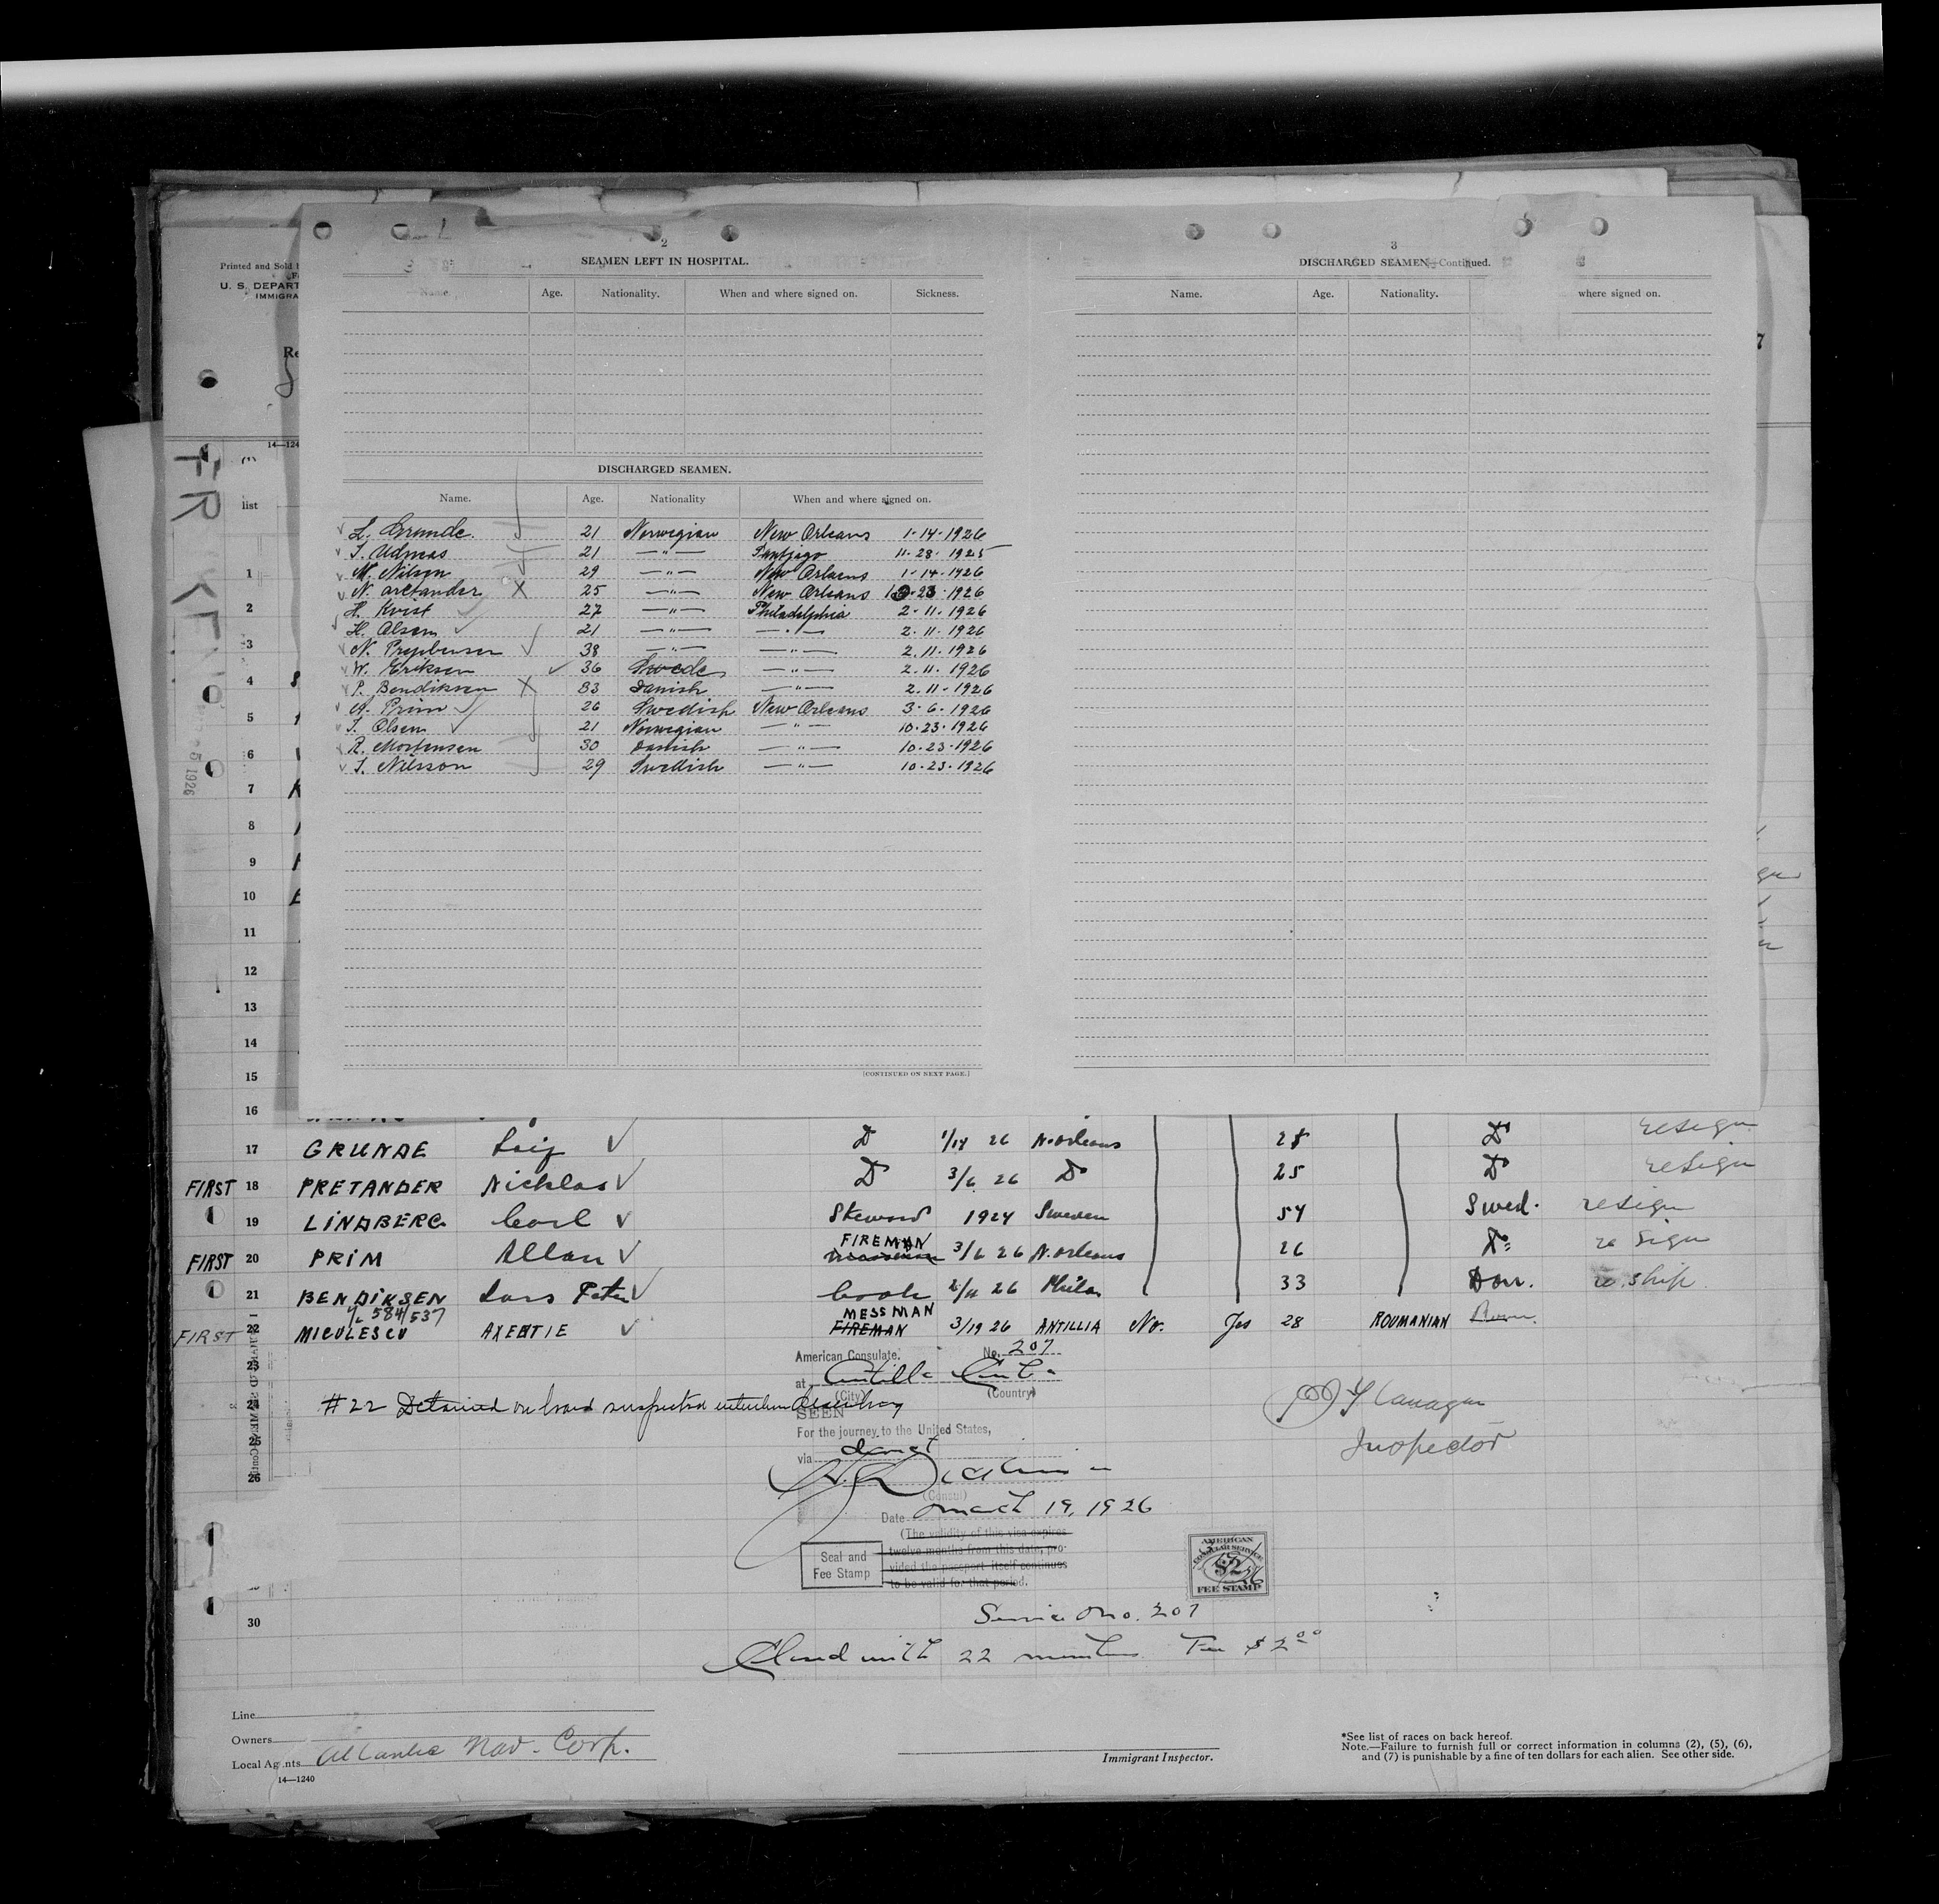 2
SEAMEN LEFT IN HOSPITAL.
Name. Age. Nationality. When and where signed on. Sickness.
DISCHARGED SEAMEN.
Name. Age. Nationality When and where signed on.
L. Grunde. 21 Norwegian New Orleans 1-14-1926
21 —"— 11-28-1925
M. Nilsen 29 —"— New Orleans 1-14-1926
N. X 25 —"— New Orleans 1926
H. Kvist 27 —"— Philadelphia 2-11-1926
H. Olsen 21 —"— —"— 2.11.1926
N. 38 —"— —"— 2.11.1926
W. Eriksen 36 Swede —"— 2.11.1926
P. Bendiksen X 33 Danish —"— 2.11-1926
A. Prim 26 Swedish New Orleans 3-6-1926
Olsen 21 Norwegian —"— 10-23-1926
R. Mortensen 30 Danish —"— 10-23-1926
Nilsson 29 Swedish —"— 10-23-1926
[CONTINUED ON NEXT PAGE.]
3
DISCHARGED SEAMEN—Continued.
Name. Age. Nationality. where signed on.
Printed and Sold
U. S. DEPART
IMMIGRA
14—124
list
1
2
3
4
5
6
7
8
9
10
11
12
13
14
15
16
17 GRUNDE Leif D 1/14 26 N. Orleans Do resign
FIRST 18 PRETANDER Nicklas Do 3/6 26 Do 25 Do resign
19 LINDBERG Carl Steward 1924 Sweden 54 Swed. resign
FIREMAN
FIRST 20 PRIM Allan 3/6 26 N. Orleans 26 Do resign
21 BENDIKSEN Lars Peter Cook 2/11 26 Phila 33 Dan. re ship
584/537 MESSMAN
FIRST 22 MICULESCU AXENTIE FIREMAN 3/19 26 ANTILLIA No. Yes 28 ROUMANIAN
23
24
25
26
30
American Consulate. No. 207
at Antilla Cuba
(City) (Country)
#22 Detained on board suspected
SEEN
For the journey to the United States,
via direct
(Consul)
Date March 19, 1926
(The validity of this visa expires
twelve months from this date, pro-
vided the passport itself continues
to be valid for that period.
Seal and
Fee Stamp
AMERICAN
CONSULAR SERVICE
$2
FEE STAMP
Flanagan
Inspector
Service No. 207
Closed with 22 members Fee $2.00
Line
Owners
Local Agents Atlantic Nav. Corp.
14—1240
Immigrant Inspector.
*See list of races on back hereof.
Note.—Failure to furnish full or correct information in columns (2), (5), (6),
and (7) is punishable by a fine of ten dollars for each alien. See other side.